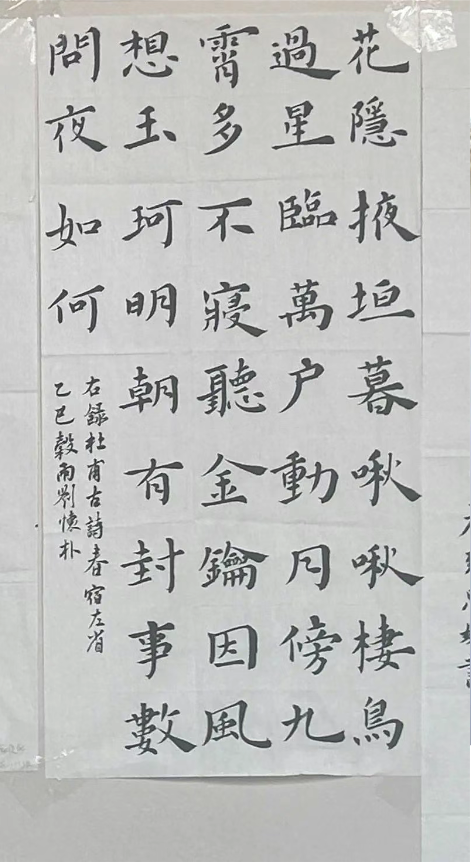 花隱掖垣暮啾啾棲鳥
過星臨萬户動月傍九
霄多不寢聽金鑰因風
想玉珂明朝有封事數
問夜如何
右録杜甫古詩春宿左省
乙巳穀雨劉懷朴